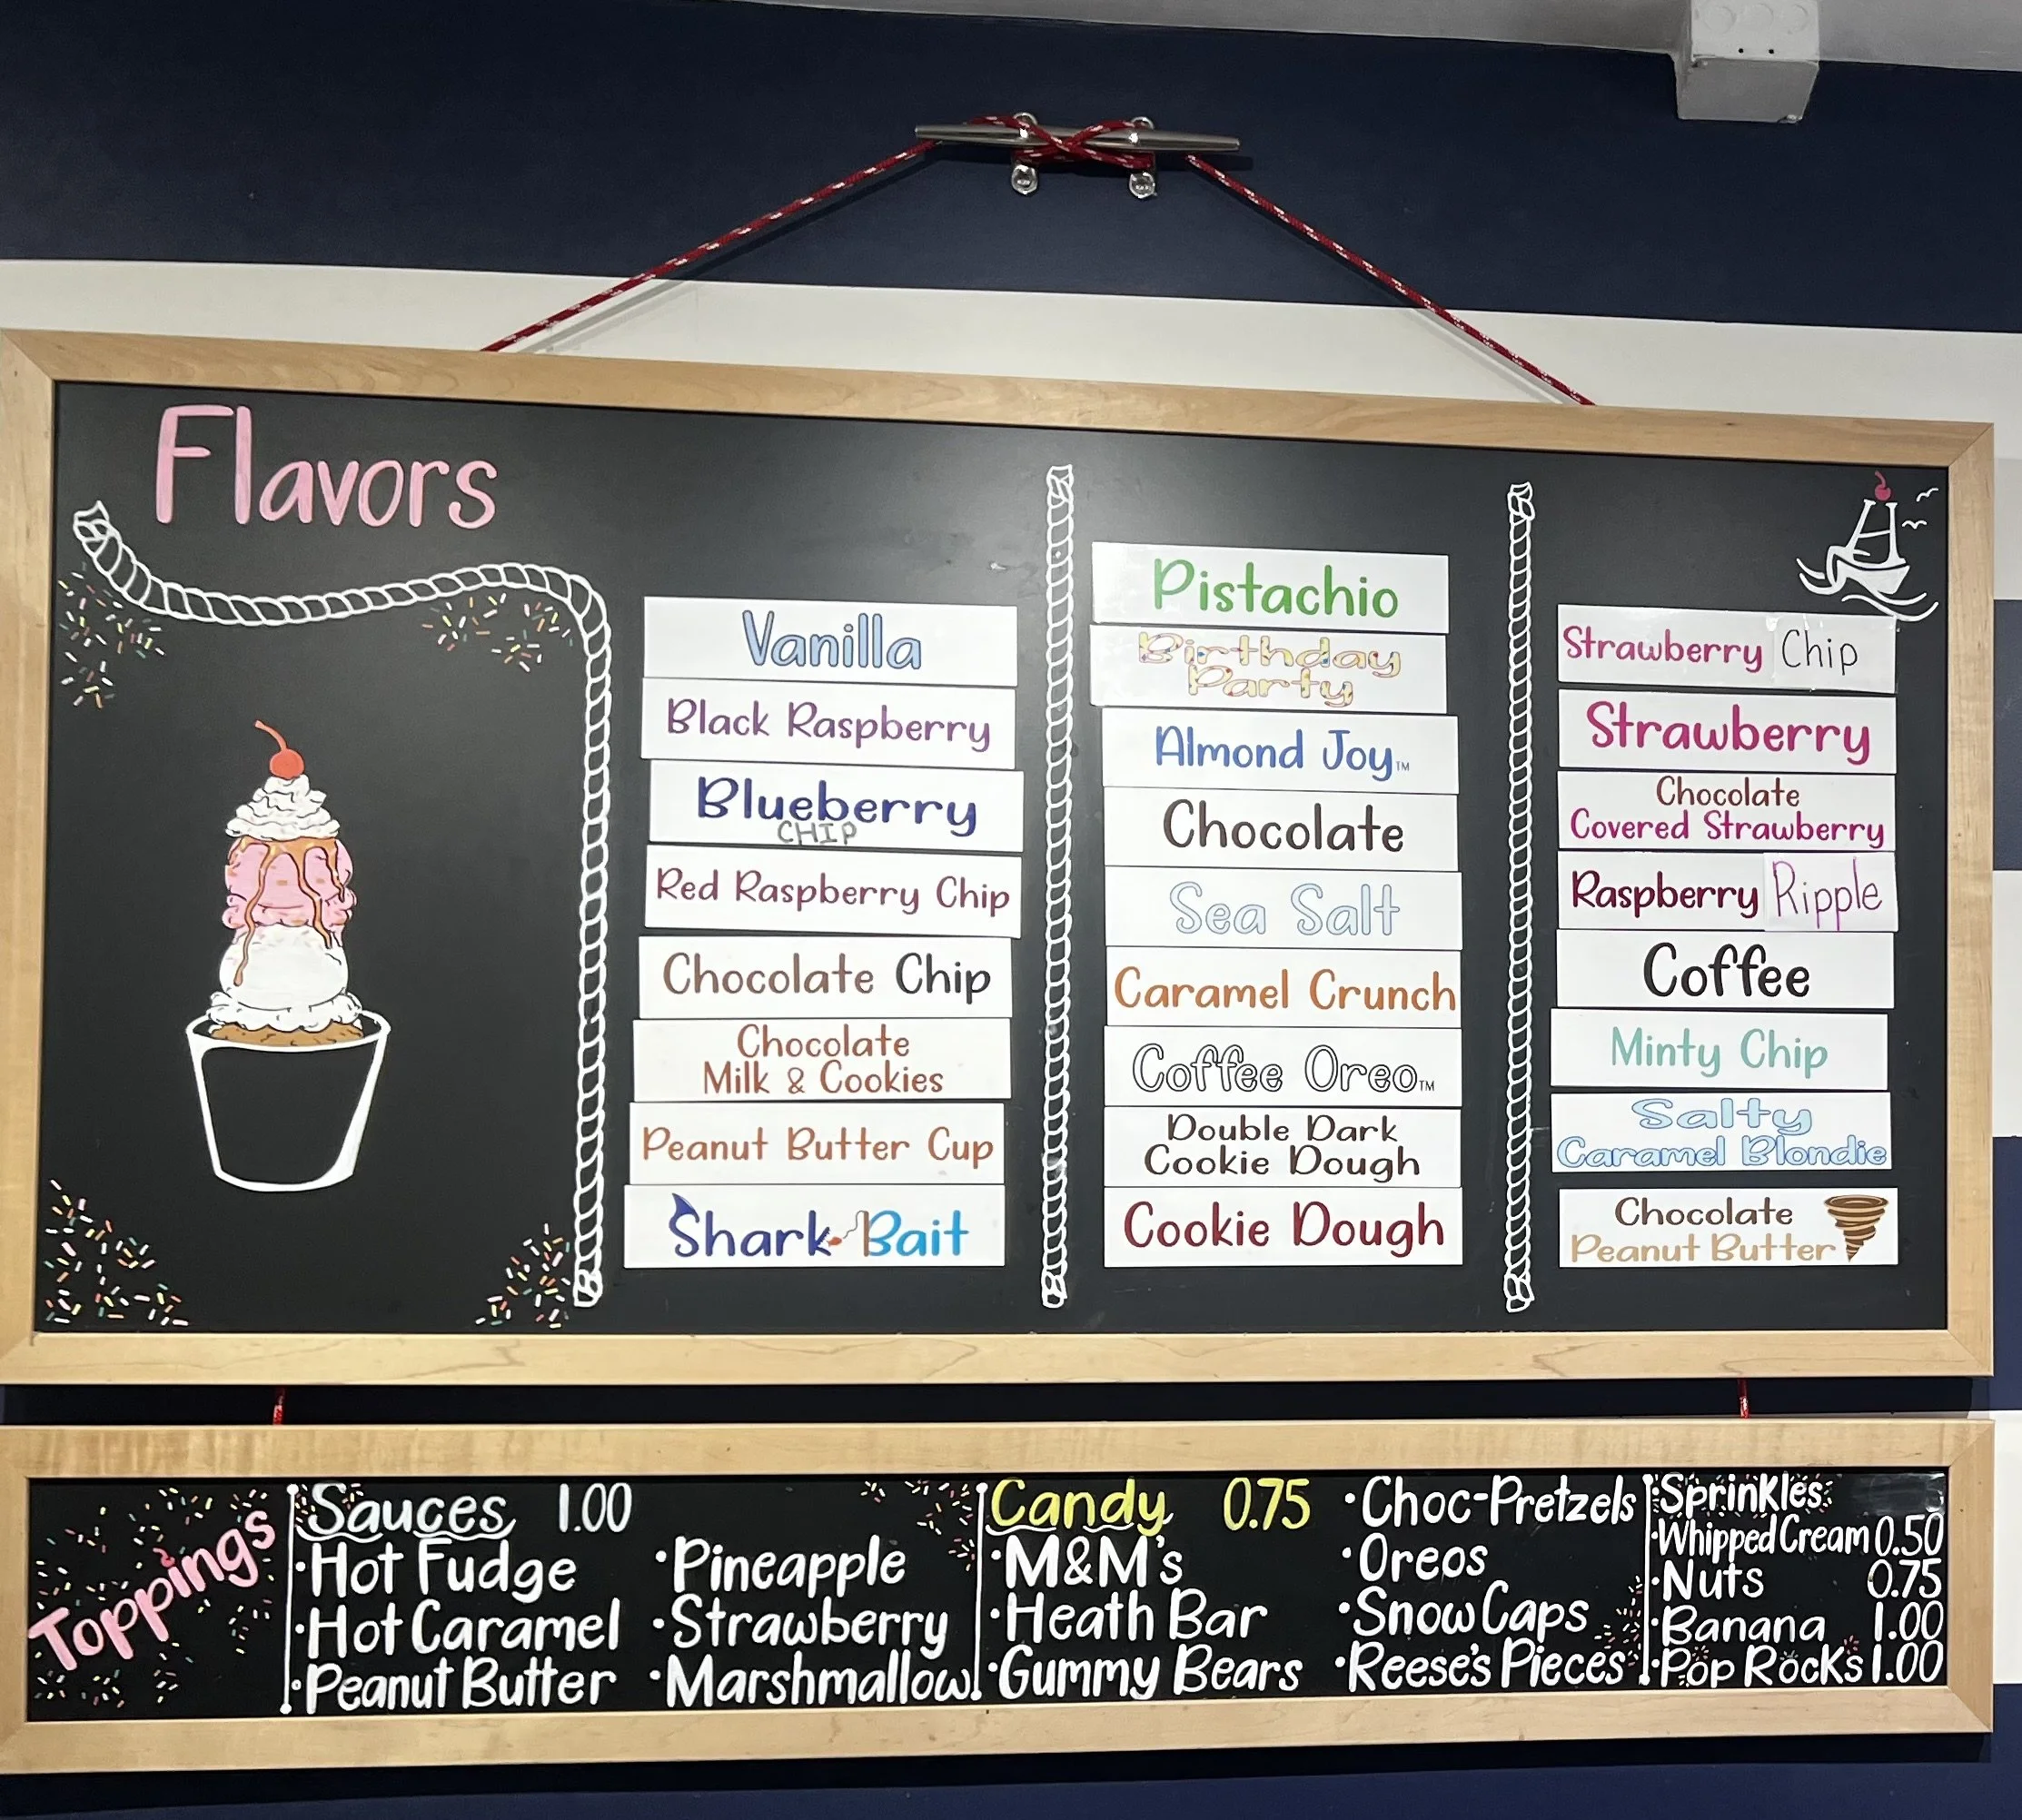 Flavors
Vanilla
Black Raspberry
Blueberry
CHIP
Red Raspberry Chip
Chocolate Chip
Chocolate
Milk & Cookies
Peanut Butter Cup
Shark Bait
Pistachio
Birthday
Party
Almond Joy™
Chocolate
Sea Salt
Caramel Crunch
Coffee Oreo™
Double Dark
Cookie Dough
Cookie Dough
Strawberry Chip
Strawberry
Chocolate
Covered Strawberry
Raspberry Ripple
Coffee
Minty Chip
Salty
Caramel Blondie
Chocolate
Peanut Butter
Toppings
Sauces 1.00
•Hot Fudge
•Hot Caramel
•Peanut Butter
•Pineapple
•Strawberry
•Marshmallow
Candy 0.75
•M&M's
•Heath Bar
•Gummy Bears
•Choc-Pretzels
•Oreos
•Snow Caps
•Reese's Pieces
•Sprinkles
•Whipped Cream 0.50
•Nuts 0.75
•Banana 1.00
•Pop Rocks 1.00